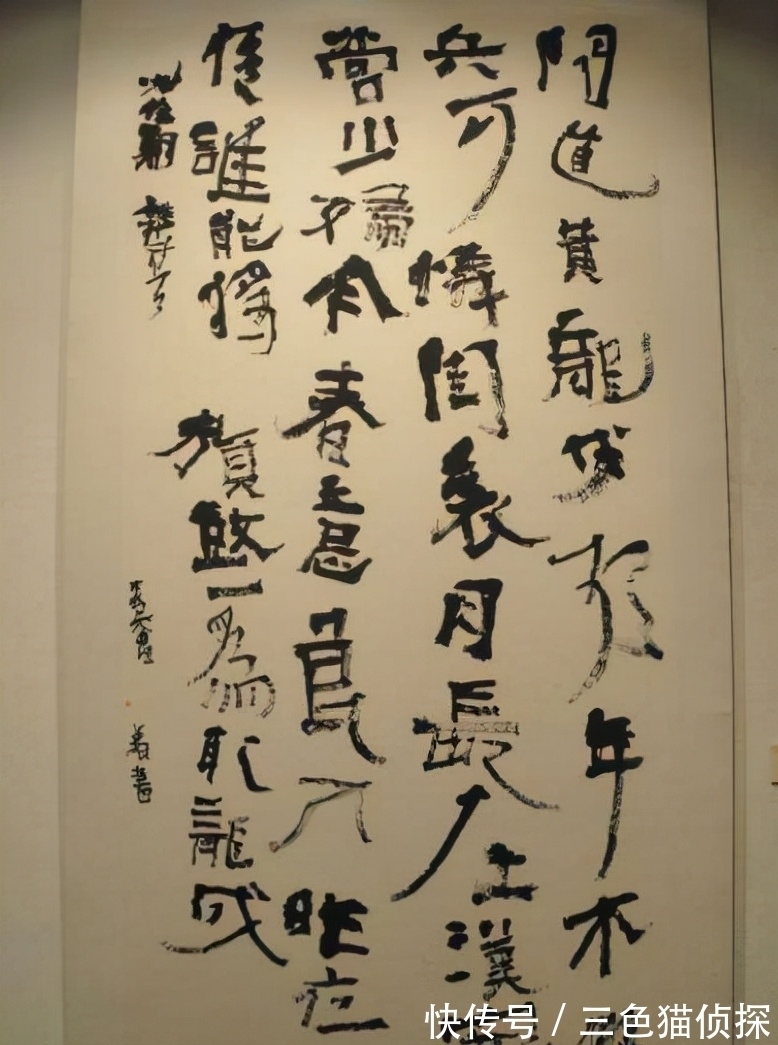 聞道黃龍戍頻年不
兵可憐閨裏月長在漢
營少婦今春意良人昨夜
情誰能將旗鼓一為取龍城
沈佺期 雜詩
快传号 / 三色猫侦探